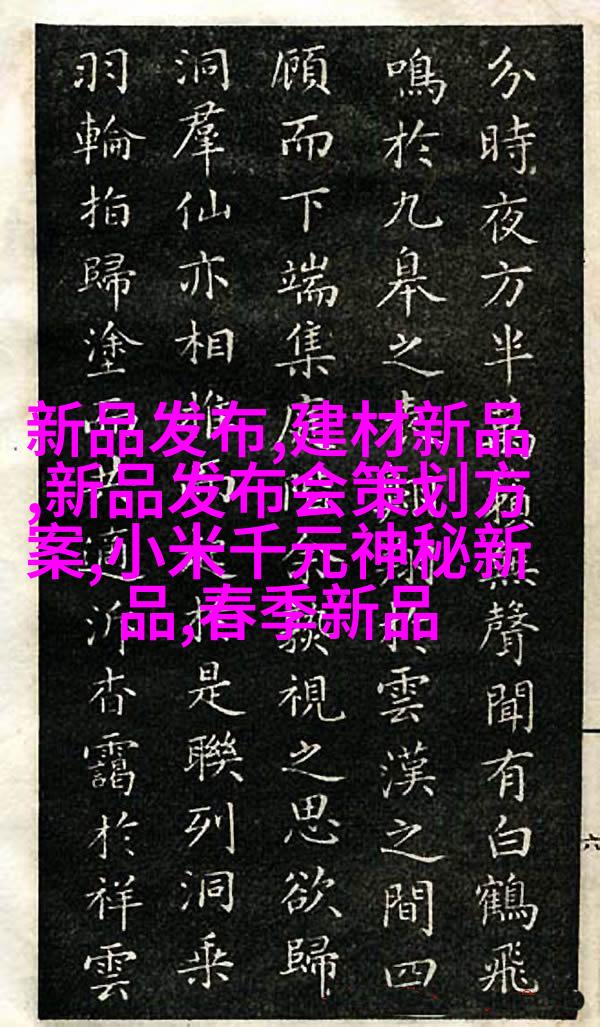 分時夜方半萬無聲聞有白鶴飛
鳴於九皋之雲漢之間四
顧而下端集庭視之思欲歸
洞羣仙亦相而是聯列洞乗
羽輪拍歸塗適沂杏靄於祥雲
六
新品发布,建材新品
,新品发布会策划方
案,小米千元神秘新
品,春季新品